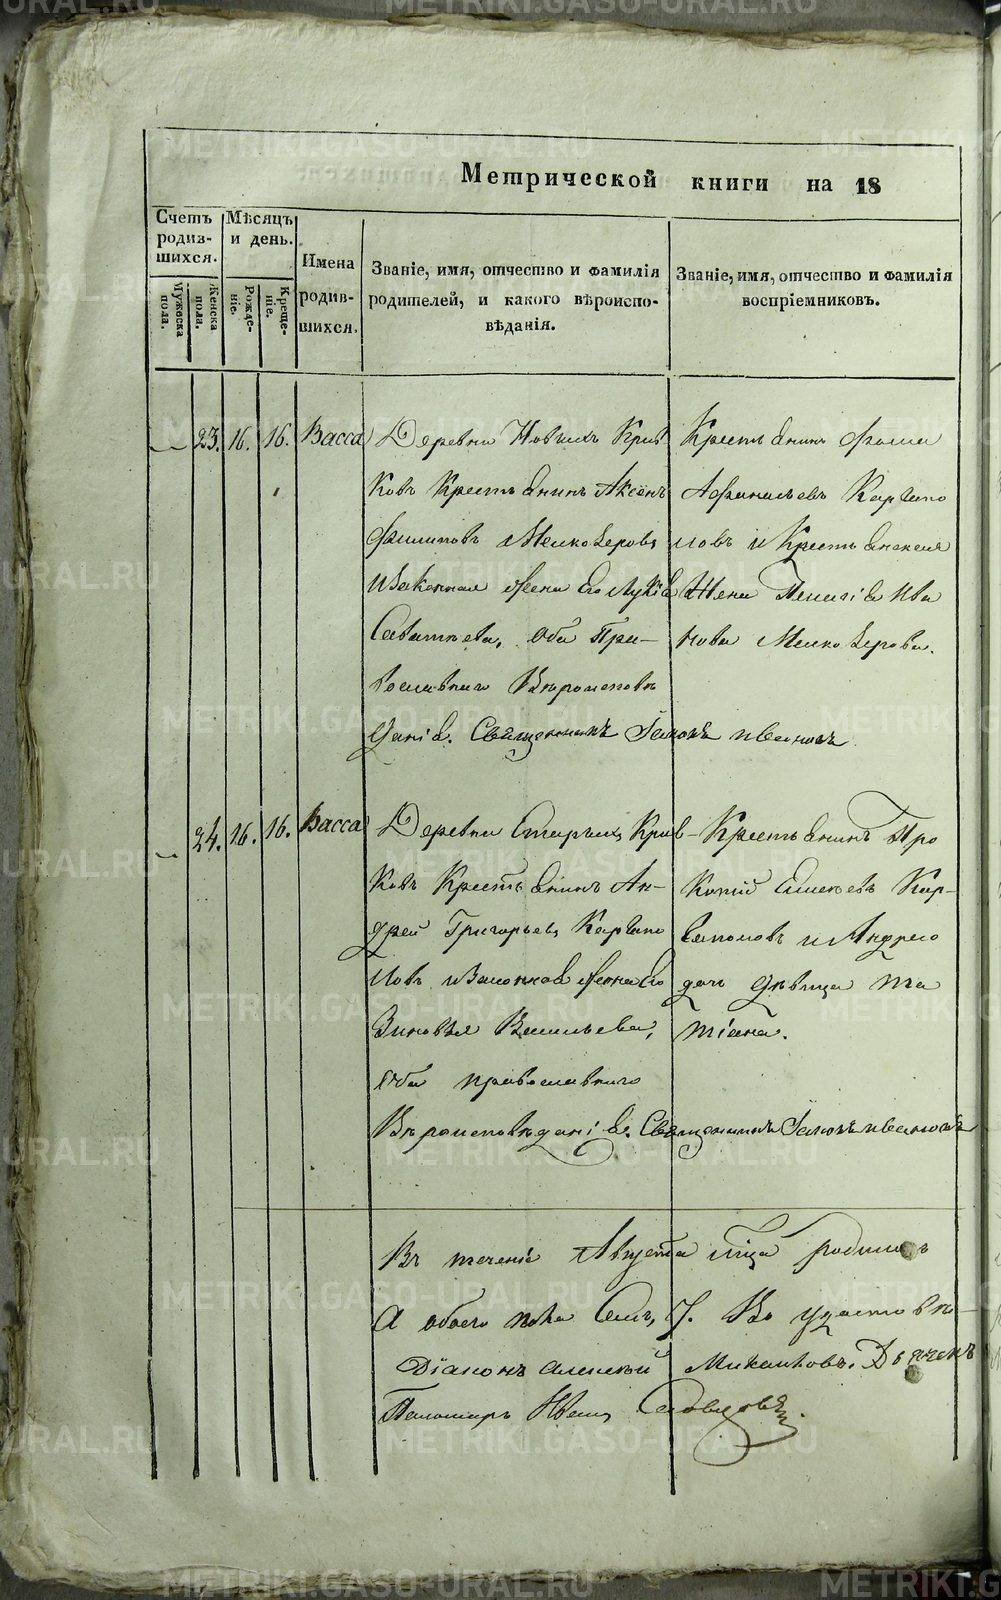 Метрической книги на 18
Счетъ родив-шихся.
Мужеска пола.
Женска пола.
Мѣсяцъ и день.
Рожде-ніе.
Креще-ніе.
Имена родив-шихся.
Званіе, имя, отчество и фамилія
родителей, и какого вѣроиспо-
вѣданія.
Званіе, имя, отчество и фамилія
воспріемниковъ.
23. 16. 16. Васса
Деревни Новыхъ Крив
ковъ Крестьянинъ Аксёнъ
Филиповъ Мелкозеровъ
изаконная жена его Лукія
Саватѣева, оба Пра-
вославнаго Вѣроисповѣ
данія. Священникъ Іаковъ Ивановъ
Крестьянинъ Фома
Афанасьевъ Карпапо
ловъ и Крестьянская
Жена Пелагія Ива
нова Мелкозерова.
24. 16. 16. Васса
Деревни Старыхъ Крив-
ковъ Крестьянинъ Ан-
дрей Григорьевъ Карпапо
ловъ изаконная жена его
Зиновья Васильева,
оба православнаго
Вѣроисповѣданія. Священникъ Іаковъ Ивановъ
Крестьянинъ Про
копій Кар-
паполовъ и Андрея
дочь дѣвица Та
тіана.
Въ теченіе Августа мца родилось
А обоего пола 7. Во удостовѣ-
Діаконъ Алексѣй Дьячекъ
Пономарь Иванъ
METRIKI.GASO-URAL.RU